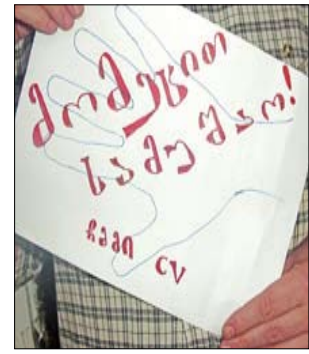 მომეცით
სამუშაო!
ჩემი CV